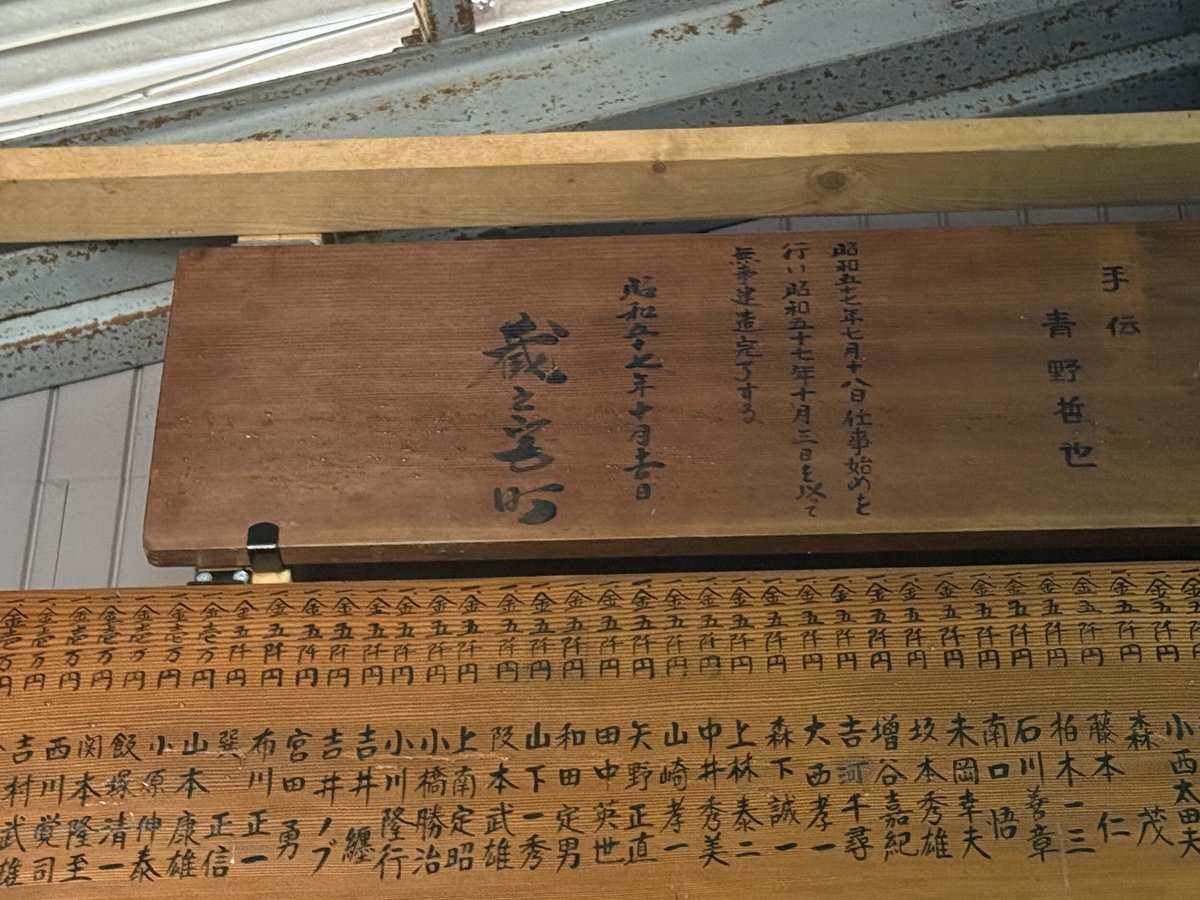 手伝
青野哲也
昭和五十七年七月十八日仕事始めを
行い昭和五十七年十月三日を以て
無事建造完了する
昭和五十七年十月吉日
蔵之宮町
小西太田夫
森 茂
一金五阡円 藤本 仁
一金五阡円 柏木一三
一金五阡円 石川善章
一金五阡円 南口 悟
一金五阡円 未岡幸夫
一金五阡円 坂本秀雄
一金五阡円 増谷嘉紀
一金五阡円 吉河千尋
一金五阡円 大西孝一
一金五阡円 森下誠一
一金五阡円 上林泰二
一金五阡円 中井秀美
一金五阡円 山崎孝一
一金五阡円 矢野正直
一金五阡円 田中英世
一金五阡円 和田定男
一金五阡円 山下一秀
一金五阡円 阪本武雄
一金五阡円 上南定昭
一金五阡円 小橋勝治
一金五阡円 小川隆行
一金五阡円 吉井 纏
一金五阡円 吉井ノブ
一金五阡円 宮田 勇
一金五阡円 布川正一
一金壱万円 巽 正信
一金壱万円 山本康雄
一金壱万円 小原伸泰
一金壱万円 飯塚清一
一金壱万円 関本隆至
一金壱万円 西川覚司
一金壱万円 吉村武雄